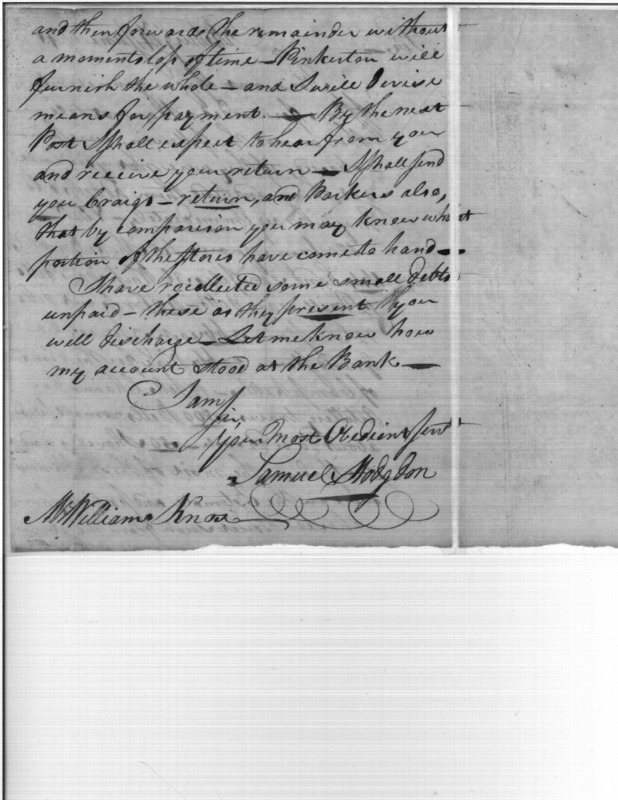 and then forwards the remainder without
a moments loss of time — Pinkerton will
furnish the whole — and I will devise
means for payment. — By the next
Post I shall expect to hear from you
and receive your return — I shall send
you Craigs — return, and Barkers also,
that by comparison you may know what
portion of the stores have come to hand —
I have recollected some small debts
unpaid — these as they present they you
will discharge — Let me know how
my account stood at the Bank —
I am
Sir,
Your Most Obedient Servt
Samuel Hodgdon
Mr William Knox